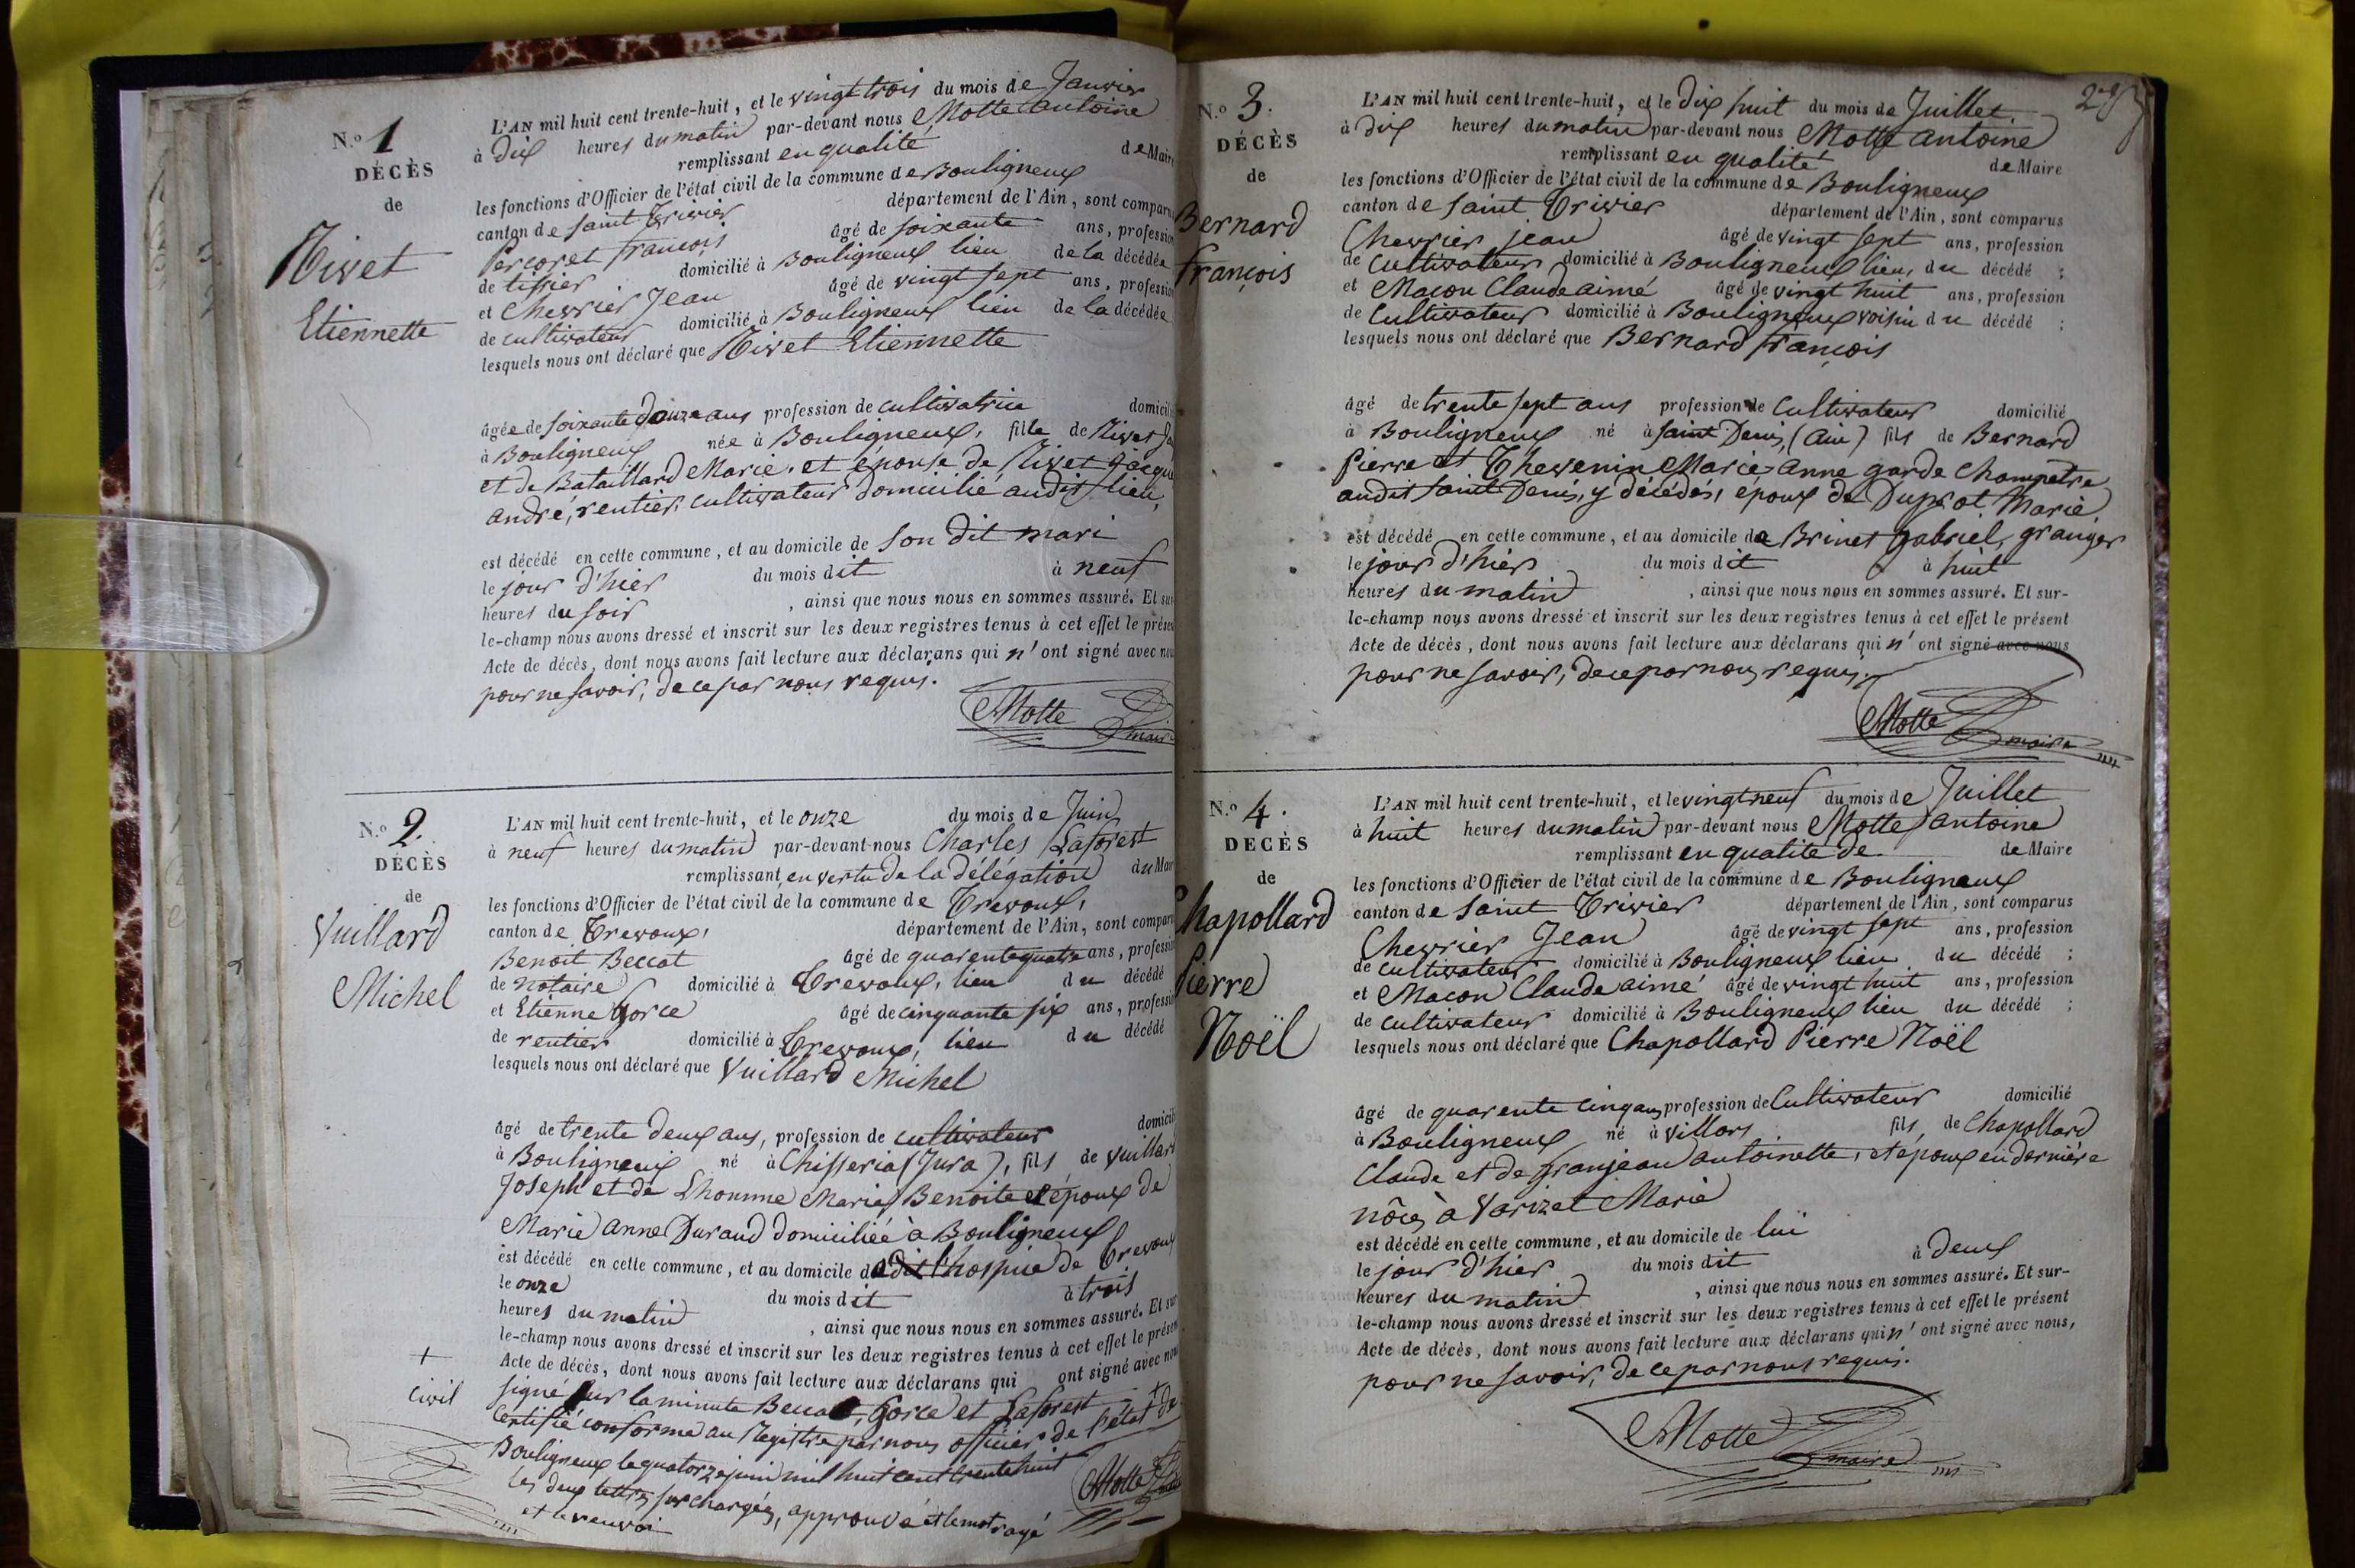 N.º 1
DÉCÈS
de
Nivet
Etiennette
L'AN mil huit cent trente-huit, et le vingt trois du mois de Janvier
à dix heures du matin par-devant nous Motte antoine
remplissant en qualité de Maire
les fonctions d'Officier de l'état civil de la commune de Bouligneux
canton de Saint Trivier département de l'Ain, sont comparu
Percoret françois âgé de soixante ans, profession
de tissier domicilié à Bouligneux lieu de la décédée
et Chevrier Jean âgé de vingt sept ans, profession
de cultivateur domicilié à Bouligneux lieu de la décédée
lesquels nous ont déclaré que Nivet Etiennette
âgée de soixante douze ans profession de cultivatrice domicili
à Bouligneux née à Bouligneux, fille de Nivet
et de Bataillard Marie, et épouse de Nivet Jacque
andré, rentier, cultivateur domicilié audit lieu,
est décédé en cette commune, et au domicile de son dit mari
le jour d'hier du mois dit à neuf
heures du soir, ainsi que nous nous en sommes assuré. Et sur
le-champ nous avons dressé et inscrit sur les deux registres tenus à cet effet le présen
Acte de décès, dont nous avons fait lecture aux déclarans qui n'ont signé avec nou
pour ne savoir, de ce par nous requis.
Motte maire
N.º 2.
DÉCÈS
de
Vuillard
Michel
L'AN mil huit cent trente-huit, et le onze du mois de Juin
à neuf heures du matin par-devant nous Charles Laforest
remplissant en vertu de la délégation du Mair
les fonctions d'Officier de l'état civil de la commune de Trevoux,
canton de Trevoux, département de l'Ain, sont comparu
Benoit Beccat âgé de quarente quatre ans, profession
de notaire domicilié à Trevoux, lieu du décédé
et Etienne Gorce âgé de cinquante six ans, profession
de rentier domicilié à Trevoux, lieu du décédé
lesquels nous ont déclaré que Vuillard Michel
âgé de trente deux ans, profession de cultivateur domicili
à Bouligneux né à Chisseria (Jura), fils de Vuillard
Joseph et de Lhomme Marie Benoite et époux de
Marie anne Durand domiciliée à Bouligneux
est décédé en cette commune, et au domicile de dit l'hospice de Trevoux
le onze du mois dit à trois
heures du matin, ainsi que nous nous en sommes assuré. Et sur
le-champ nous avons dressé et inscrit sur les deux registres tenus à cet effet le présen
Acte de décès, dont nous avons fait lecture aux déclarans qui ont signé avec nou
signé sur la minute Beccat, Gorce et Laforest
Certifié conforme au Registre par nous officier de l'état + de
+ civil
Bouligneux le quatorze juin mil huit cent trente huit
les deux lettres surchargées, approuvé et le mot rayé
et le renvoi
Motte
N.º 3.
DÉCÈS
de
Bernard
françois
L'AN mil huit cent trente-huit, et le dix huit du mois de Juillet
à dix heures du matin par-devant nous Motte antoine
remplissant en qualité de Maire
les fonctions d'Officier de l'état civil de la commune de Bouligneux
canton de Saint Trivier département de l'Ain, sont comparus
Chevrier Jean âgé de vingt sept ans, profession
de cultivateur domicilié à Bouligneux lieu, du décédé ;
et Macon Claude aimé âgé de vingt huit ans, profession
de Cultivateur domicilié à Bouligneux voisin du décédé ;
lesquels nous ont déclaré que Bernard françois
âgé de trente sept ans profession de Cultivateur domicilié
à Bouligneux né à Saint Denis, (Ain) fils de Bernard
Pierre et Thevenin Marie-anne garde champetre
audit Saint Denis, y décédés, époux de Duprat Marie
est décédé en cette commune, et au domicile de Brinet Gabriel, granger
le jour d'hier du mois dit à huit
heures du matin, ainsi que nous nous en sommes assuré. Et sur-
le-champ nous avons dressé et inscrit sur les deux registres tenus à cet effet le présent
Acte de décès, dont nous avons fait lecture aux déclarans qui n'ont signé avec nous
pour ne savoir, de ce par nous requis.
Motte maire
N.º 4.
DÉCÈS
de
Chapollard
Pierre
Noël
L'AN mil huit cent trente-huit, et le vingt neuf du mois de Juillet
à huit heures du matin par-devant nous Motte antoine
remplissant en qualité de de Maire
les fonctions d'Officier de l'état civil de la commune de Bouligneux
canton de Saint Trivier département de l'Ain, sont comparus
Chevrier Jean âgé de vingt sept ans, profession
de cultivateur domicilié à Bouligneux lieu du décédé ;
et Macon Claude aimé âgé de vingt huit ans, profession
de cultivateur domicilié à Bouligneux lieu du décédé ;
lesquels nous ont déclaré que Chapollard Pierre Noël
âgé de quarente cinq ans profession de Cultivateur domicilié
à Bouligneux né à Villars fils de Chapollard
Claude et de Granjean antoinette, et époux en dernière
nôces à Varizet Marie
est décédé en cette commune, et au domicile de lui
le jour d'hier du mois dit à deux
heures du matin, ainsi que nous nous en sommes assuré. Et sur-
le-champ nous avons dressé et inscrit sur les deux registres tenus à cet effet le présent
Acte de décès, dont nous avons fait lecture aux déclarans qui n'ont signé avec nous,
pour ne savoir, de ce par nous requis.
Motte maire